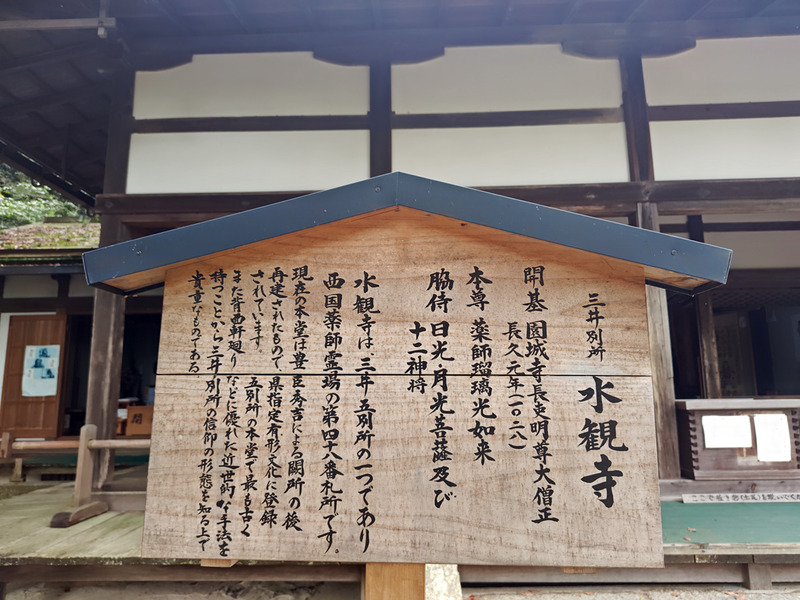 三井別所 水観寺
開基 園城寺長吏明尊大僧正
長久元年(一〇二八)
本尊 薬師瑠璃光如来
脇侍 日光・月光菩薩及び
十二神将
水観寺は三井五別所の一つであり
西国薬師霊場の第四十八番札所です。
現在の本堂は豊臣秀吉による闕所の後
再建されたもので、県指定有形文化に登録
されています。五別所の本堂で最も古く
また背面軒廻りなどに優れた近世的な手法を
持つことから三井別所の信仰の形態を知る上で
貴重なものである。
ここで履き物(土足)を脱いで